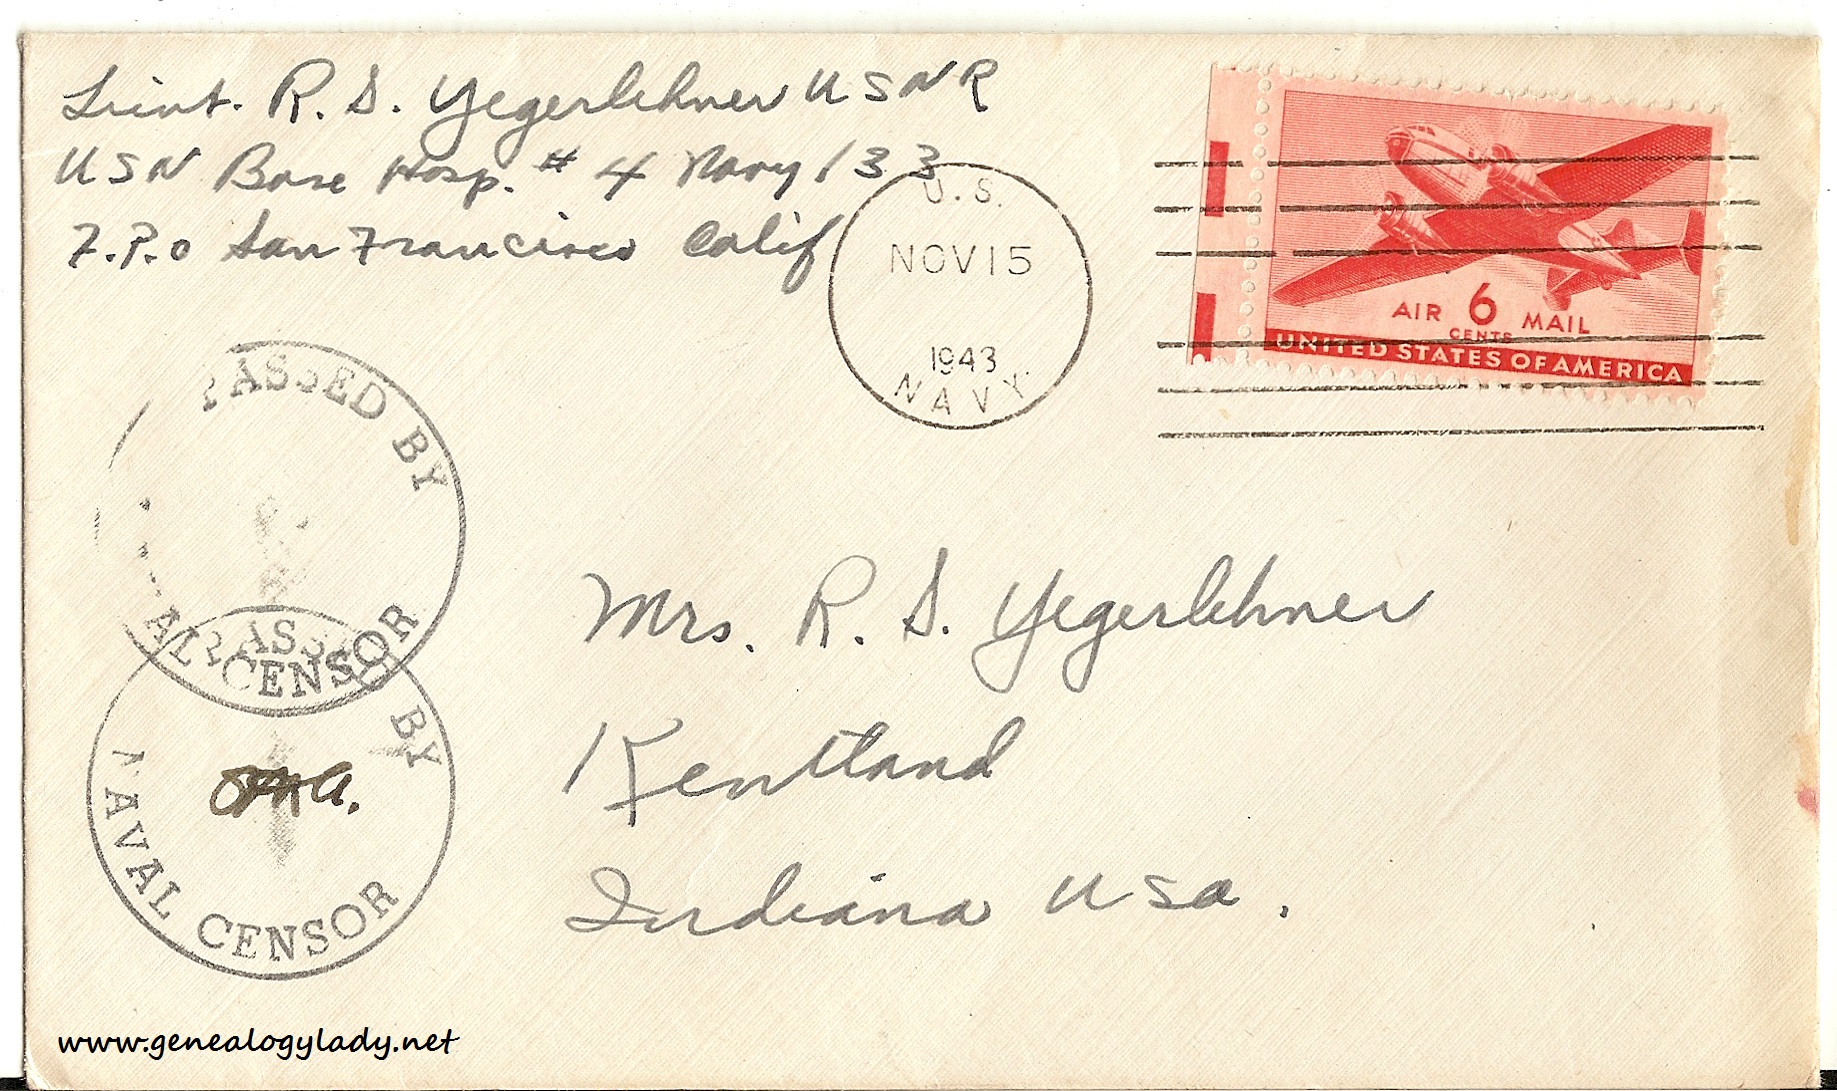 Lieut. R. S. Yegerlehner USNR
USN Base Hosp. # 4 Navy 133
F.P.O San Francisco Calif
U.S.
NOV 15
1943
NAVY
AIR 6 MAIL
CENTS
UNITED STATES OF AMERICA
PASSED BY
CENSOR
PASSED BY
NAVAL CENSOR
Mrs. R. S. Yegerlehner
Kentland
Indiana USA.
www.genealogylady.net